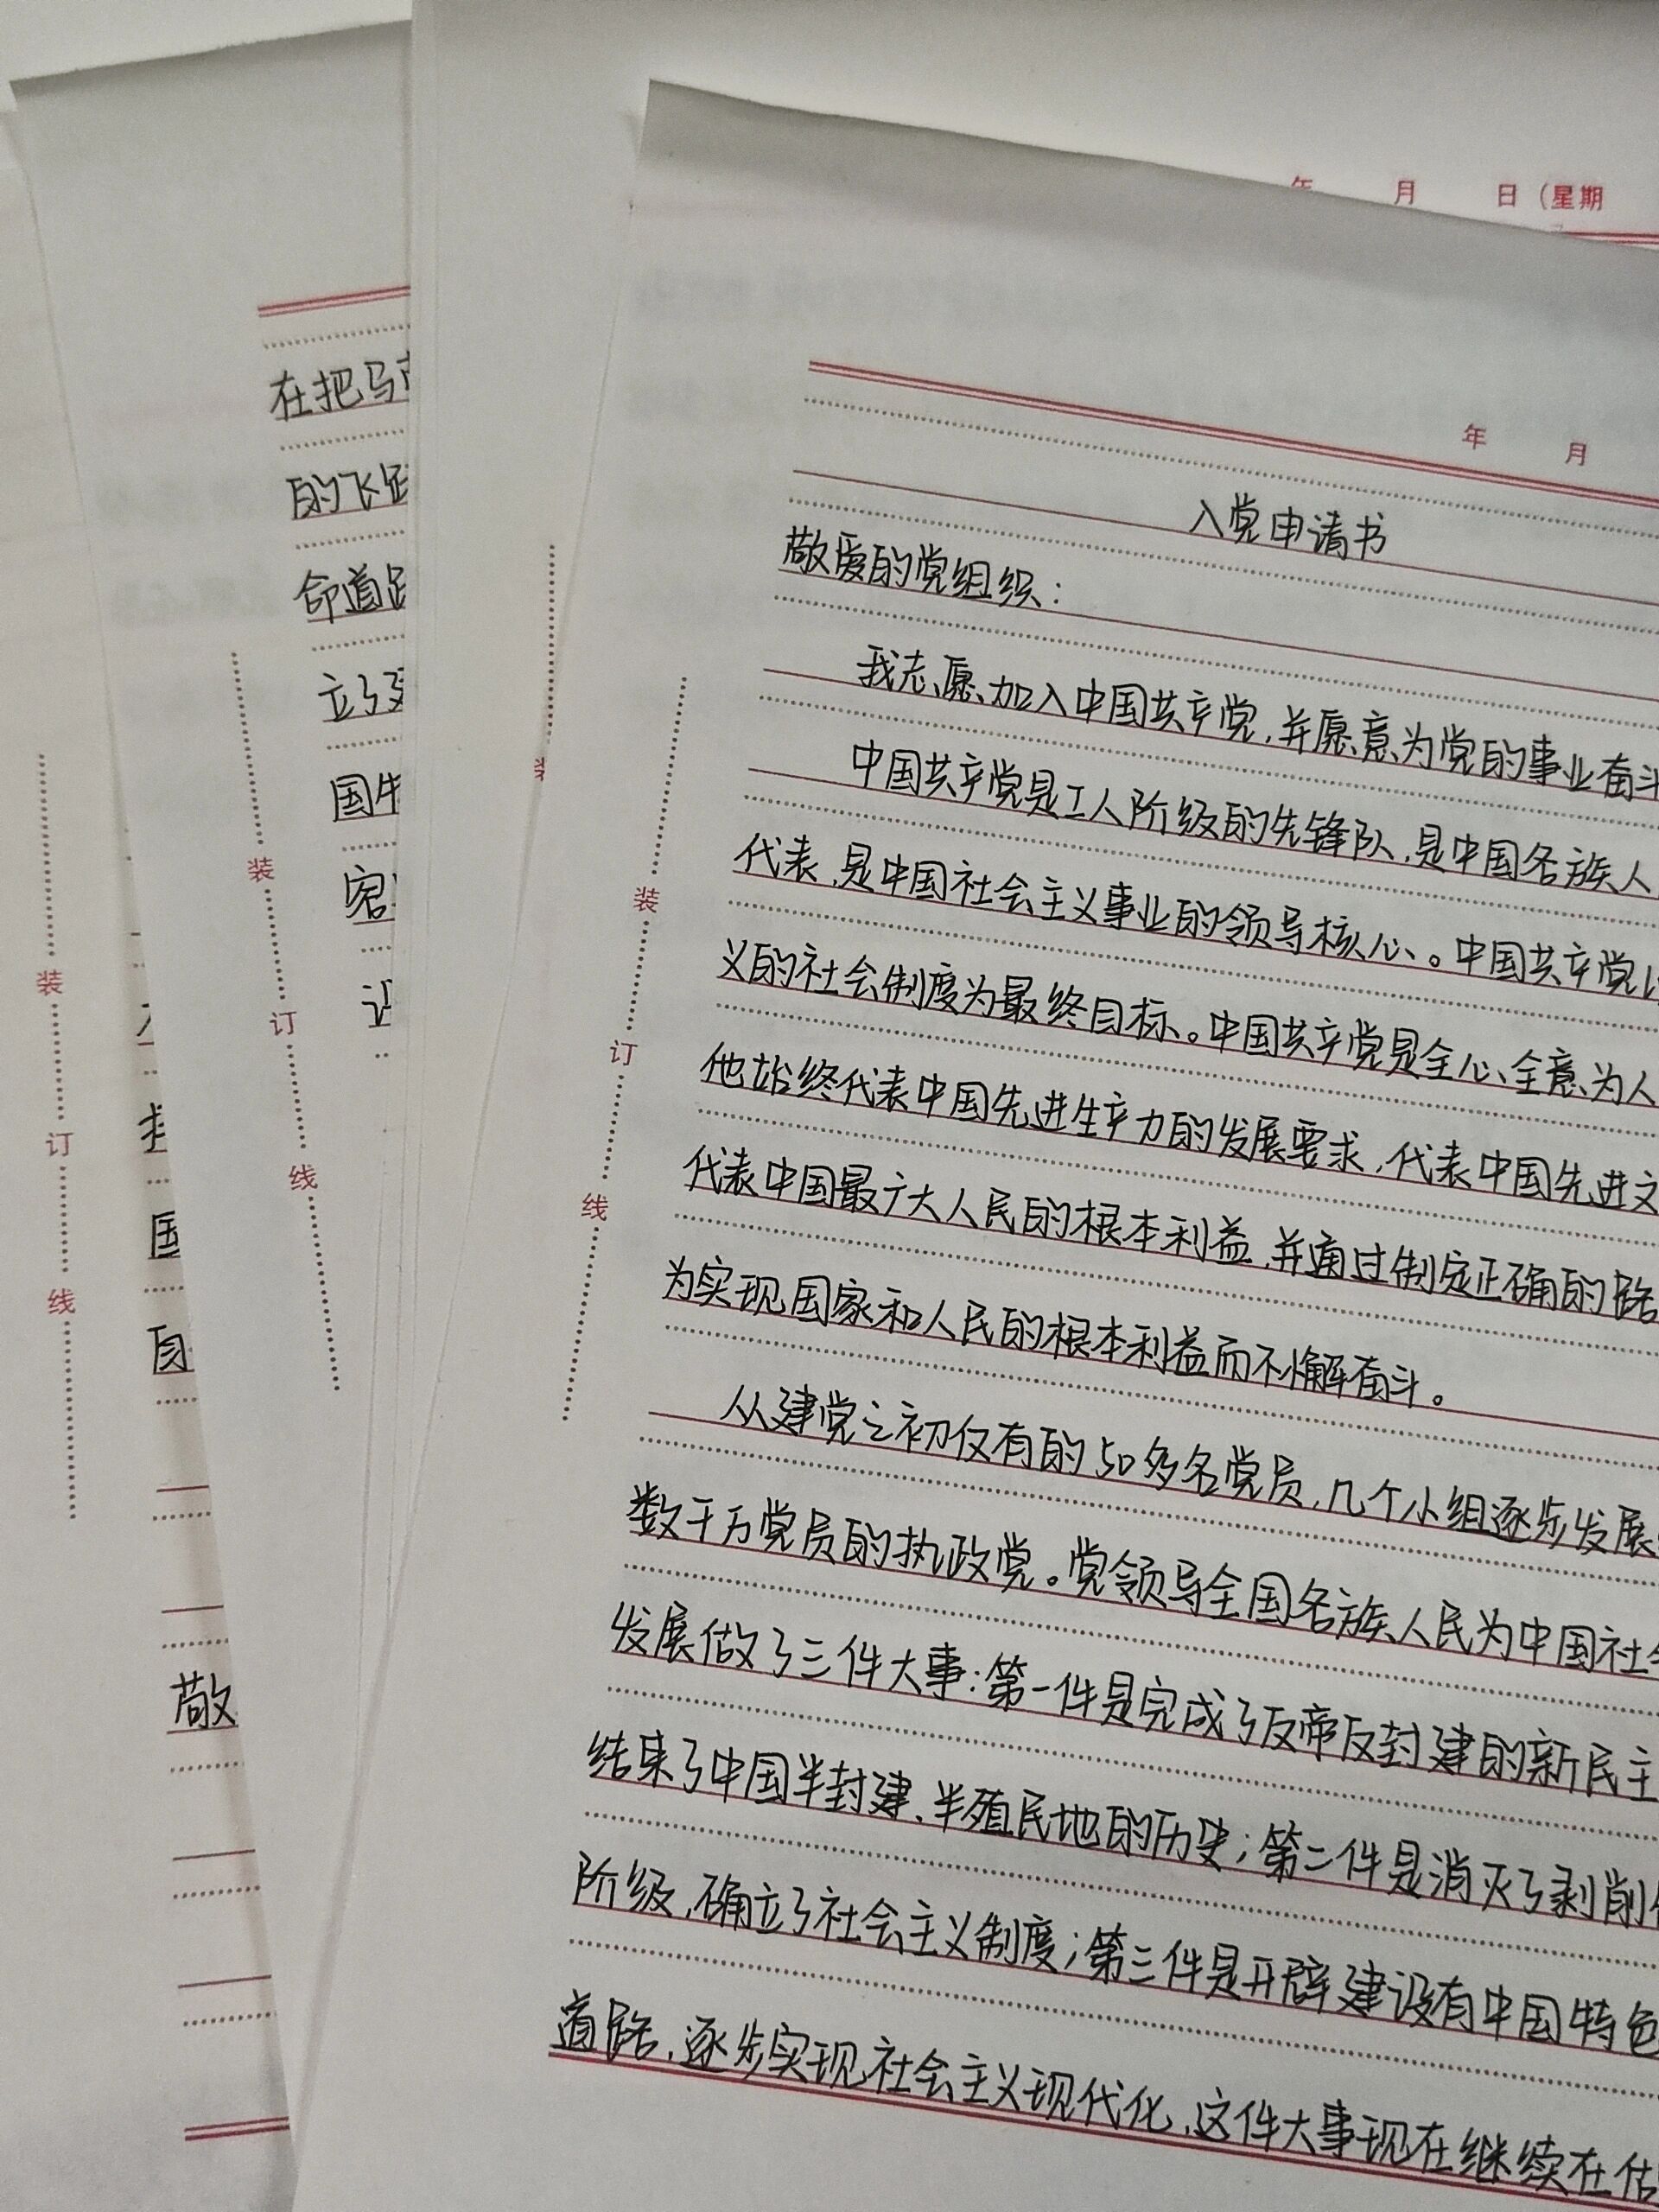 年 月 日（星期
年 月
入党申请书
敬爱的党组织：
我志愿加入中国共产党，并愿意为党的事业奋斗
中国共产党是工人阶级的先锋队，是中国各族人
代表，是中国社会主义事业的领导核心。中国共产党以
义的社会制度为最终目标。中国共产党是全心全意为人
他始终代表中国先进生产力的发展要求，代表中国先进文
代表中国最广大人民的根本利益，并通过制定正确的路
为实现国家和人民的根本利益而不懈奋斗。
从建党之初仅有的50多名党员，几个小组逐步发展
数千万党员的执政党。党领导全国各族人民为中国社会
发展做了三件大事：第一件是完成了反帝反封建的新民主
结束了中国半封建、半殖民地的历史；第二件是消灭了剥削
阶级，确立了社会主义制度；第三件是开辟建设有中国特色
道路，逐步实现社会主义现代化，这件大事现在继续在
装
订
线
装
在把马
的飞跃
命道路
立了
国
客
让
装
订
线
国
自
敬
装
订
线